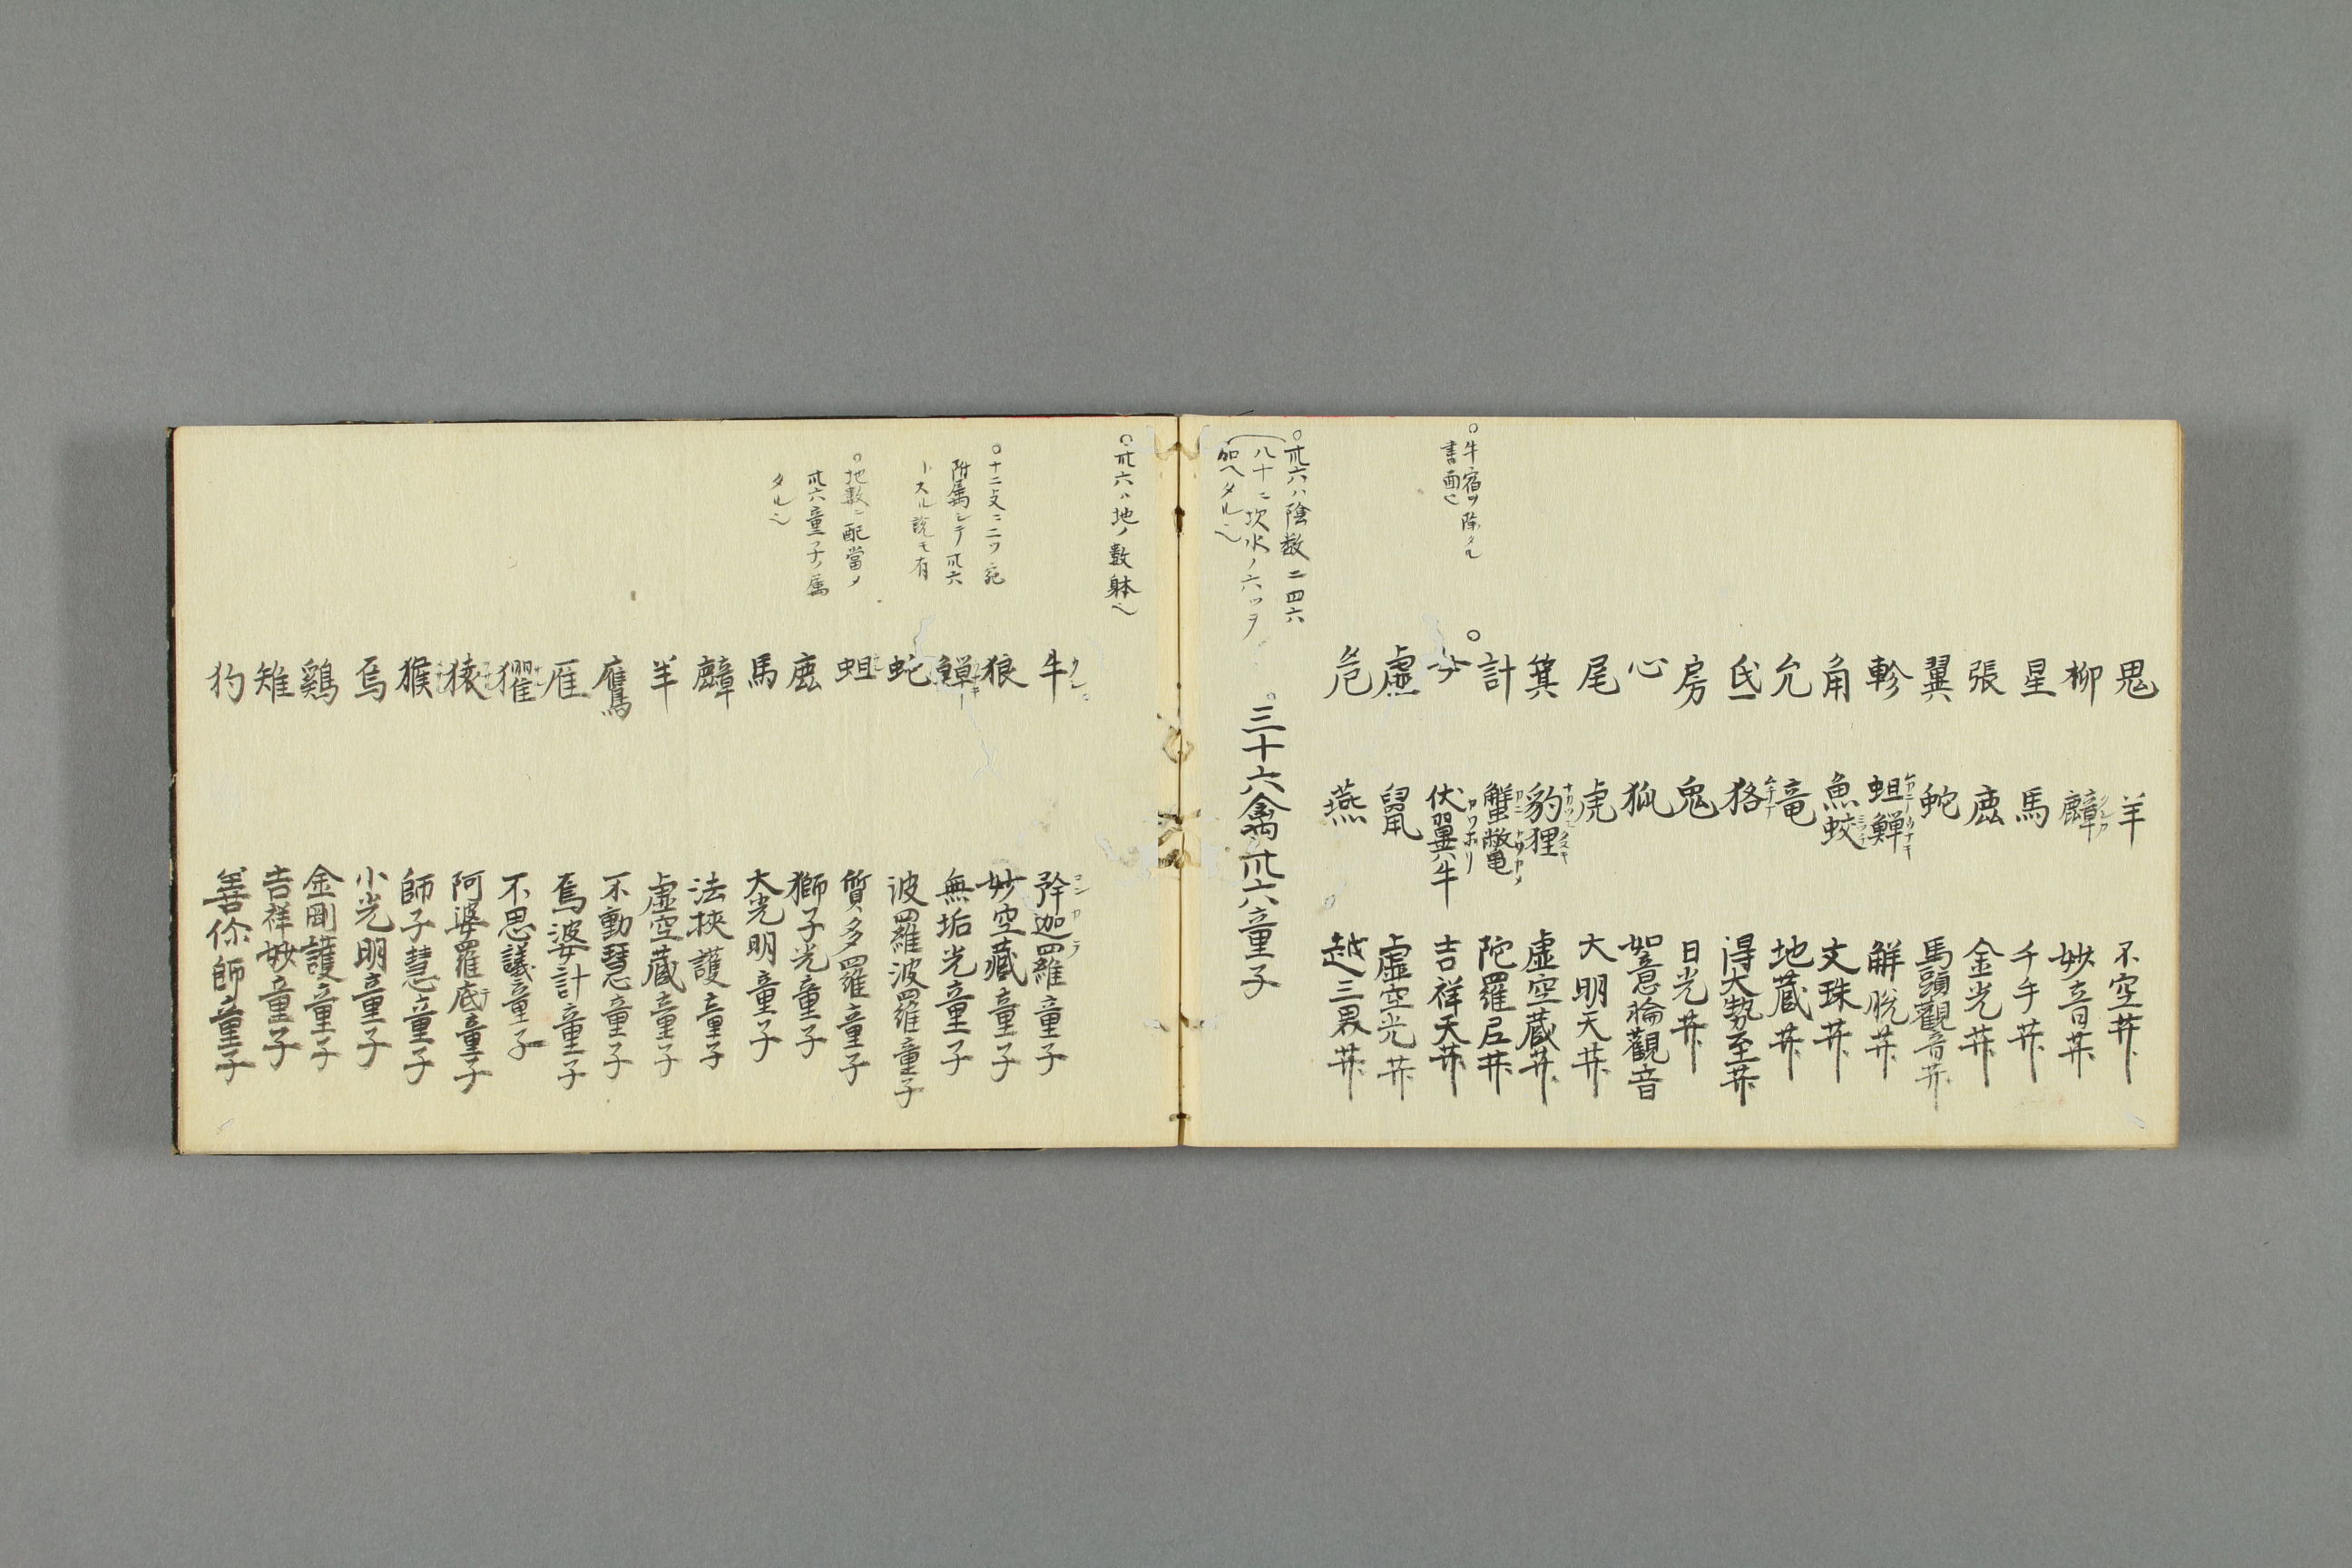 鬼 羊 不空𦬇
柳 麞 妙音𦬇
星 馬 千手𦬇
張 鹿 金光𦬇
翼 蛇 馬頭觀音𦬇
軫 蛆鱓 解脱𦬇
角 魚蛟 文珠𦬇
亢 竜 地蔵𦬇
氐 狢 得大勢至𦬇
房 兔 日光𦬇
心 狐 如意輪觀音
尾 虎 大明天𦬇
箕 豹狸 虚空蔵𦬇
計 蟹鼈 陀羅尼𦬇
○牛宿ヲ除タル
書面也
○女 伏翼牛 吉祥天𦬇
虚 鼠 虚空光𦬇
危 燕 越三界𦬇
○卅六ハ陰数二四六
八十ニ坎水ノ六ツヲ
加ヘタル也
○三十六禽卅六童子
○卅六ハ地ノ數躰也
牛 矜迦羅童子
コンカラ
狼 妙空藏童子
○十二支ニ二ツ宛
附属シテ卅六
トスル説モ有
鱓 無垢光童子
蛇 波羅波羅童子
蛆 質多羅童子
○地数ニ配當メ
卅六童子ノ属
タル也
鹿 獅子光童子
馬 大光明童子
麞 法挾護童子
羊 虚空藏童子
鷹 不動慧童子
雁 烏婆計童子
玃 不思議童子
猿 阿婆羅底童子
猴 師子慧童子
烏 小光明童子
鷄 金剛護童子
雉 吉祥妙童子
狗 善你師童子